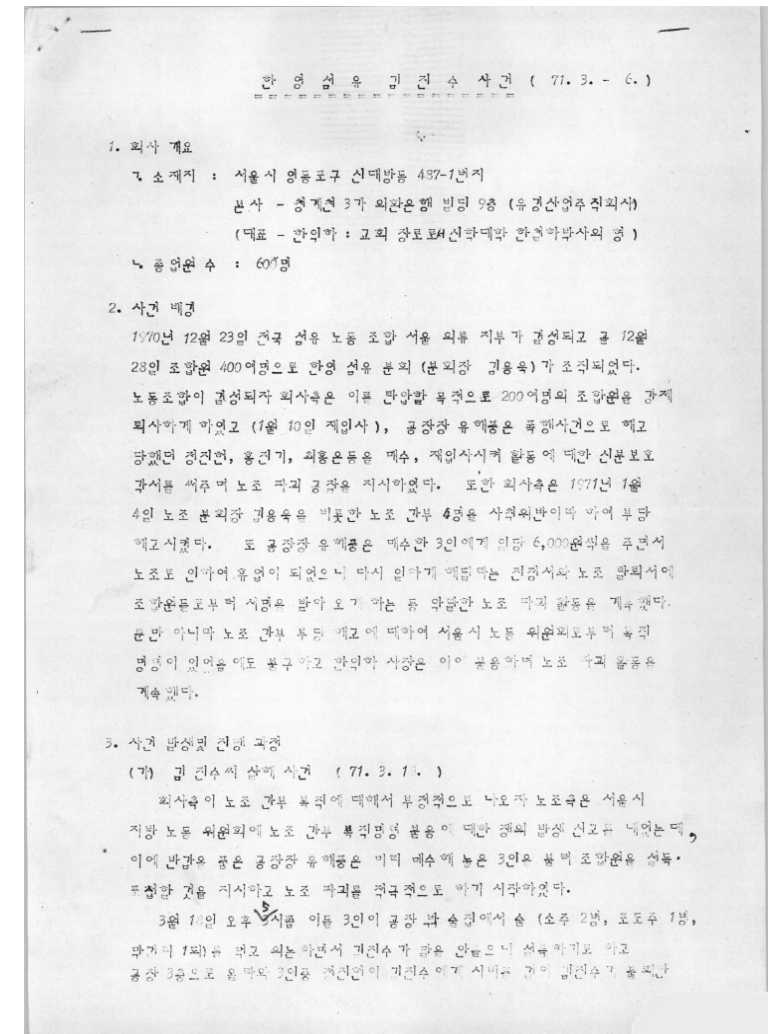 한 영 섬 유 김 진 수 사 건 ( 71. 3. - 6. )
1. 회사 개요
ㄱ. 소재지 : 서울시 영등포구 신대방동 487-1번지
본사 - 청계천 3가 외환은행 빌딩 9층 (유경산업주식회사)
(대표 - 한익하 : 교회 장로로서 신학대학 한철하박사의 형 )
ㄴ. 종업원 수 : 600명
2. 사건 배경
1970년 12월 23일 전국 섬유 노동 조합 서울 의류 지부가 결성되고 곧 12월
28일 조합원 400여명으로 한영 섬유 분회 (분회장 김용욱)가 조직되었다.
노동조합이 결성되자 회사측은 이를 탄압할 목적으로 200여명의 조합원을 강제
퇴사하게 하였고 (1월 10일 재입사), 공장장 유해풍은 폭행사건으로 해고
당했던 정진헌, 홍진기, 최홍은등을 매수, 재입사시켜 활동에 대한 신분보호
각서를 써주며 노조 파괴 공작을 지시하였다. 또한 회사측은 1971년 1월
4일 노조 분회장 김용욱을 비롯한 노조 간부 4명을 사칙위반이라 하여 부당
해고시켰다. 또 공장장 유해풍은 매수한 3인에게 일당 6,000원씩을 주면서
노조로 인하여 휴업이 되었으니 다시 일하게 해달라는 진정서와 노조 탈퇴서에
조합원들로부터 서명을 받아 오게 하는 등 악랄한 노조 파괴 활동을 계속했다.
뿐만 아니라 노조 간부 부당 해고에 대하여 서울시 노동 위원회로부터 복직
명령이 있었음에도 불구하고 한익하 사장은 이에 불응하며 노조 파괴 활동을
계속했다.
3. 사건 발생및 진행 과정
(가) 김 진수씨 살해 사건 ( 71. 3. 18. )
회사측이 노조 간부 복직에 대해서 부정적으로 나오자 노조측은 서울시
지방 노동 위원회에 노조 간부 복직명령 불응에 대한 쟁의 발생 신고를 내었는데,
이에 반감을 품은 공장장 유해풍은 미리 매수해 놓은 3인을 불러 조합원을 설득·
포섭할 것을 지시하고 노조 파괴를 적극적으로 하기 시작하였다.
3월 18일 오후 5시쯤 이들 3인이 공장 밖 술집에서 술 (소주 2병, 포도주 1병,
막걸리 1되)를 먹고 의논하면서 김진수가 말을 안들으니 설득하기로 하고
공장 3층으로 올라와 3인중 정진헌이 김진수에게 시비를 걸어 김진수가